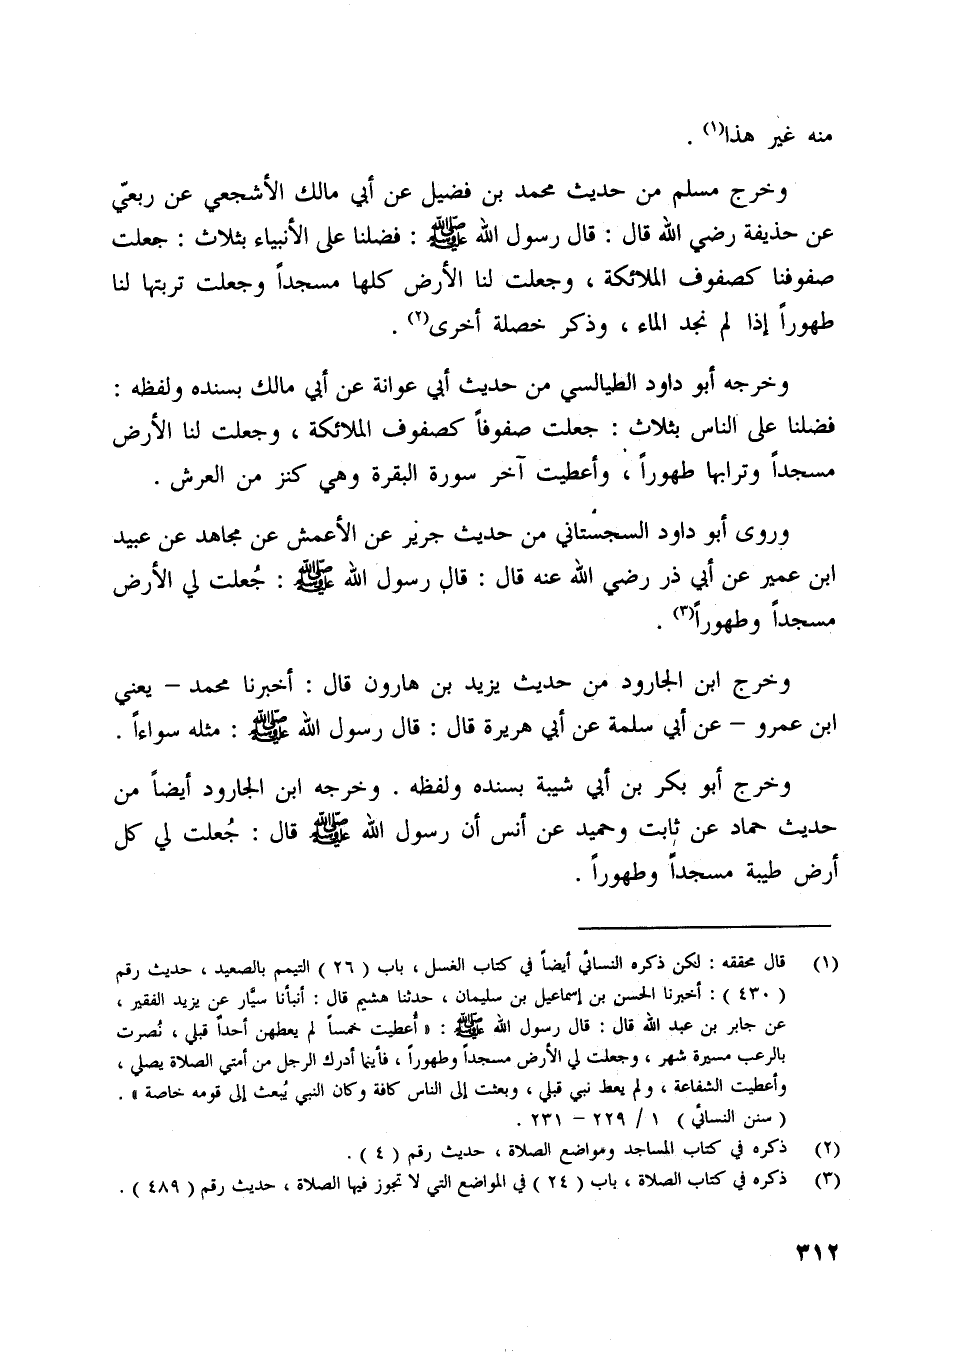 منه غير هذا(١) .
وخرج مسلم من حديث محمد بن فضيل عن أبي مالك الأشجعي عن ربعيّ
عن حذيفة رضي الله قال : قال رسول الله ﷺ : فضلنا على الأنبياء بثلاث : جعلت
صفوفنا كصفوف الملائكة ، وجعلت لنا الأرض كلها مسجداً وجعلت تربتها لنا
طهوراً إذا لم نجد الماء ، وذكر خصلة أخرى(٢) .
وخرجه أبو داود الطيالسي من حديث أبي عوانة عن أبي مالك بسنده ولفظه :
فضلنا على الناس بثلاث : جعلت صفوفاً كصفوف الملائكة ، وجعلت لنا الأرض
مسجداً وترابها طهوراً ، وأعطيت آخر سورة البقرة وهي كنز من العرش .
وروى أبو داود السجستاني من حديث جرير عن الأعمش عن مجاهد عن عبيد
ابن عمير عن أبي ذر رضي الله عنه قال : قال رسول الله ﷺ : جُعلت لي الأرض
مسجداً وطهوراً(٣) .
وخرج ابن الجارود من حديث يزيد بن هارون قال : أخبرنا محمد – يعني
ابن عمرو – عن أبي سلمة عن أبي هريرة قال : قال رسول الله ﷺ : مثله سواءاً .
وخرج أبو بكر بن أبي شيبة بسنده ولفظه . وخرجه ابن الجارود أيضاً من
حديث حماد عن ثابت وحميد عن أنس أن رسول الله ﷺ قال : جُعلت لي كل
أرض طيبة مسجداً وطهوراً .
(١) قال محققه : لكن ذكره النسائي أيضاً في كتاب الغسل ، باب ( ٢٦ ) التيمم بالصعيد ، حديث رقم
( ٤٣٠ ) : أخبرنا الحسن بن إسماعيل بن سليمان ، حدثنا هشيم قال : أنبأنا سيَّار عن يزيد الفقير ،
عن جابر بن عبد الله قال : قال رسول الله ﷺ : « أُعطيت خمساً لم يعطهن أحداً قبلي ، نُصرت
بالرعب مسيرة شهر ، وجعلت لي الأرض مسجداً وطهوراً ، فأينما أدرك الرجل من أمتي الصلاة يصلي ،
وأعطيت الشفاعة ، ولم يعط نبي قبلي ، وبعثت إلى الناس كافة وكان النبي يُبعث إلى قومه خاصة » .
( سنن النسائي ) ١ / ٢٢٩ – ٢٣١ .
(٢) ذكره في كتاب المساجد ومواضع الصلاة ، حديث رقم ( ٤ ) .
(٣) ذكره في كتاب الصلاة ، باب ( ٢٤ ) في المواضع التي لا تجوز فيها الصلاة ، حديث رقم ( ٤٨٩ ) .
٣١٢